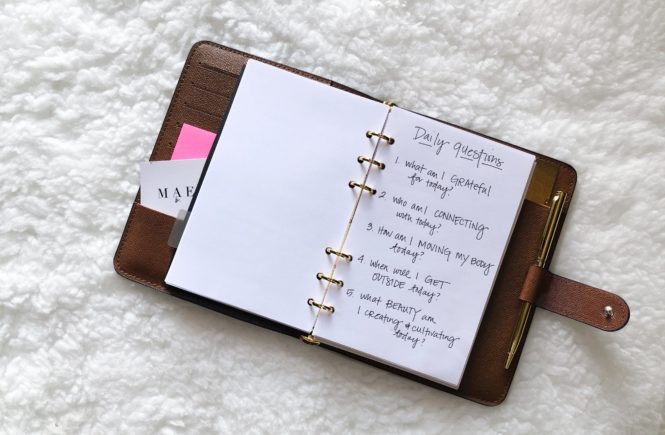 MAE
Daily questions
1. what am I GRATEful
for today?
2. who am I CONNECTING
with today?
3. How am I MOVING MY BODY
today?
4. when will I GET
OUTSIDE today?
5. what BEAUTY am
I creating & cultivating
today?